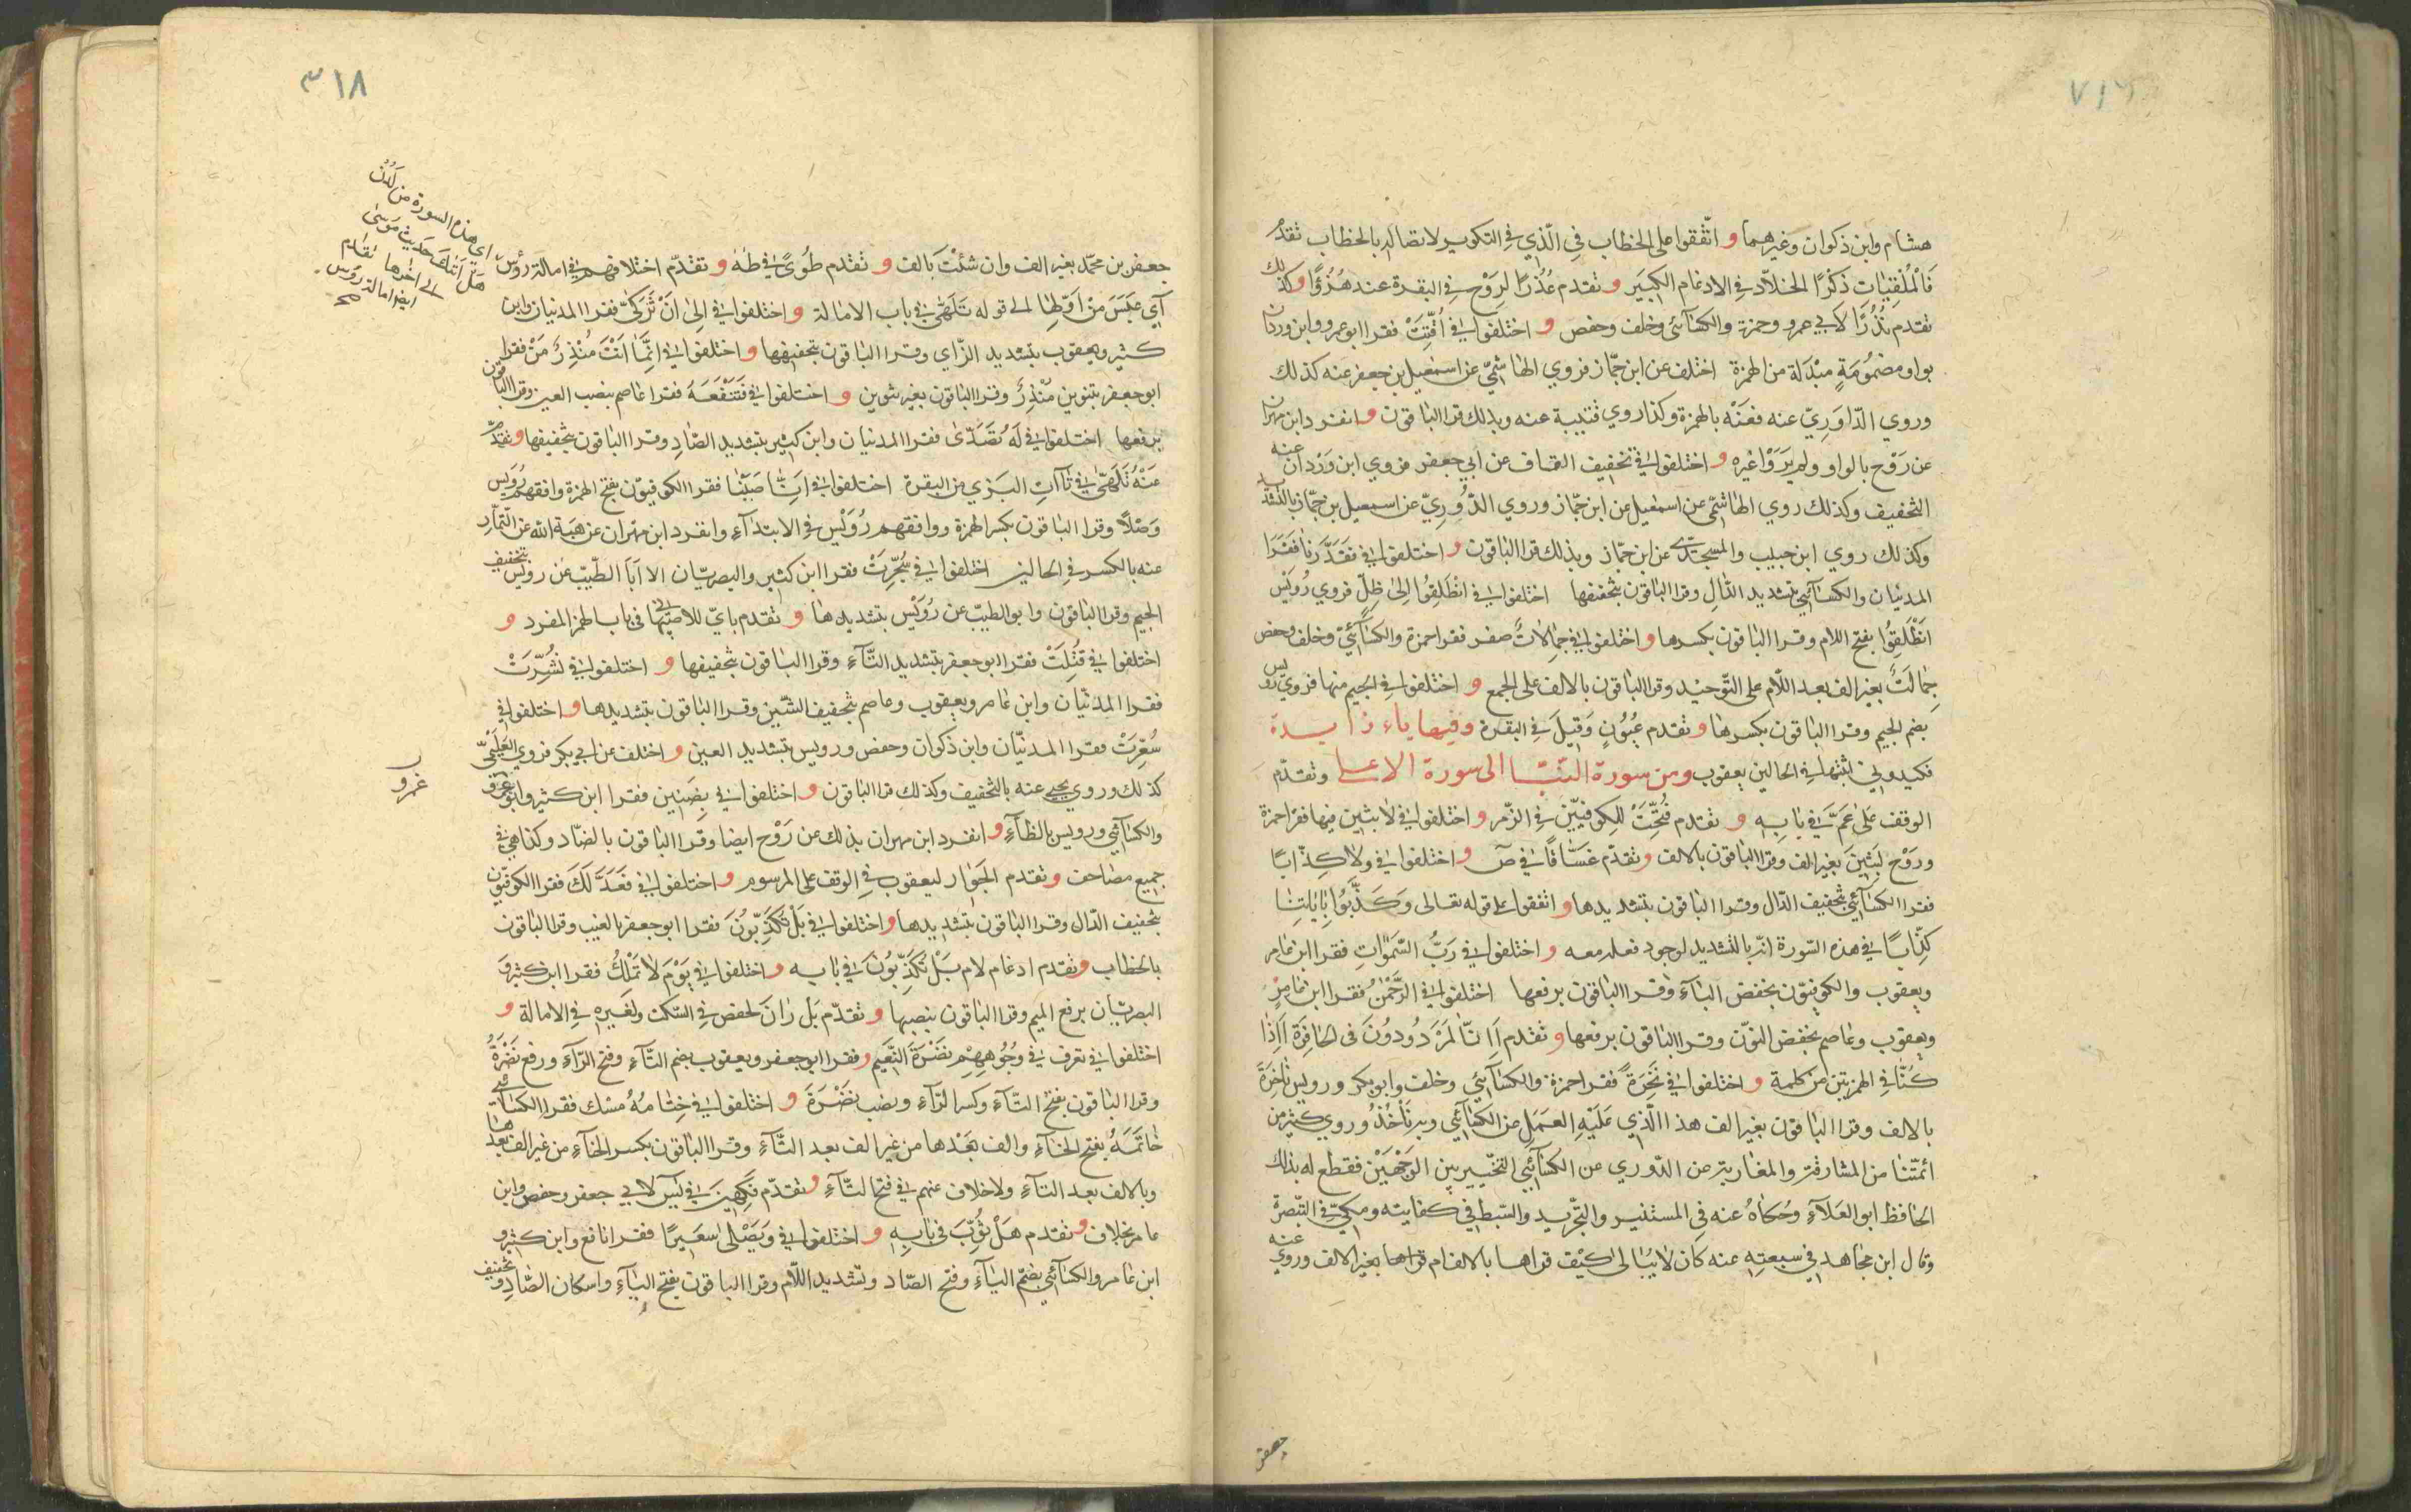 هشام وابن ذكوان وغيرهما و اتّفقوا على الخطاب في الّذي في التكوير لاتصاله بالخطاب تقدم
فَالْمُلْقِيٰاتِ ذِكْرًا الخلّاد في الادغام الكبير و تقدم عُذْرًا لِرَوْح في البقرة عند هُزُؤًا وكذلك
تقدم نُذْرًا لابي عمرو وحمزة والكسٰآئي وخلف وحفص و اختلفوا في اُقِّتَتْ فقرا ابو عمرو وابن وردان
بواو مضمُومَةٍ مبْدَلة من الهمزة اختلف عن ابن جمّاز فروي الهٰاشميّ عن اسمٰعيل بن جعفر عنه كذلك
وروي الدّاوَرِيّ عنه فعَنْه بالهمزة وكذا روي قتيبة عنه وبذلك قرا البٰاقون و انفرد ابن مهران
عن رَوْح بالواو ولم يَرَوْا غيره و اختلفوا في تخفيف القاف عن ابي جعفر فروي ابن وَرْدان عنه
التخفيف وكذلك روي الهٰاشميّ عن اسمٰعيل عن ابن جمّاز وروي الدّورِيّ عن اسمعيل بن جمّاز بالتشديد
وكذلك روي ابن حبيب والمسجدّي عن ابن جمّاز وبذلك قرا البٰاقون و اختلفوا في فقَدَّرنٰا فقَرَا
المدنيٰان والكسٰآئي بتشديد الدّالِ وقرا البٰاقون بتخفيفها اختلفوا في انْطَلِقُوا اِلىٰ ظِلٍّ فروي رُوَيْس
انْطَلَقُوا بفتح اللام وقرا البٰاقون بكسرها و اختلفوا في جِمٰالاتٌ صفر فقرا حمزة والكسٰآئيّ وخلف وحفص
جِمٰالَتٌ بغير الف بعد اللّام على التّوحيد وقرا البٰاقون بالالف على الجمع و اختلفوا في الجيم منها فروي رويس
بضم الجيم وقرا البٰاقون بكسرهٰا و تقدم عُيُونٍ وَقيلَ في البقرة وفيها ياء زايدة
فكيدوني اثبتها في الحالين يعقوب ومن سورة النّبَا الى سورة الاعلى وتقدّم
الوقف عَلىٰ عَمَّ في بٰابِه و تقدم فُتِّحَتْ للكوفيّين في الزّمر و اختلفوا في لٰابثين فيها فقرا حمزة
ورَوْح لَبِثينَ بغير الف وقرا البٰاقون بالالف و تقدّم غسّاقًا في صٓ و اختلفوا في ولا كِذّابًا
فقرا الكسٰآئي بتخفيف الذّال وقرا البٰاقون بتشديدها و اتفقوا على قوله تعالى وَكَذَّبُوا بِاٰيٰاتِنٰا
كِذّابًا في هذه السّورة انّه بالتشديد لوجود فعله معه و اختلفوا في رَبُّ السّمٰوٰاتِ فقرا ابن عٰامر
ويعقوب والكوفيّون بخفض البٰآءِ وقرا البٰاقون برفعها اختلفوا في الرَّحْمٰنُ فقرا ابن عٰامر
ويعقوب وعٰاصم بخفض النوّن وقرا البٰاقون برفعها و تقدم اَانّٰا لَمَرْدُودُونَ فى الحٰافِرَة اَاِذٰا
كُنّٰا في الهمزتين من كلمة و اختلفوا في نَخِرَةً فقرا حمزة والكسٰآئي وخلف وابو بكر ورويس نٰاخِرَةً
بالالف وقرا البٰاقون بغير الف هذا الّذي عَلَيْهِ العمَل عن الكسٰآئي وبه نَأْخُذُ وروي كثير من
ائمّتنٰا من المشارقة والمغٰاربة عن الدّوري عن الكسٰآئي التخيّير بين الوَجْهَيْن فقطع له بذلك
الحٰافظ ابو العَلَآءِ وحُكٰاهُ عنه في المستنير والتّجريد والسّبط في كفٰايته ومكّيّ في التّبصرة
وقال ابن مجٰاهد في سبعتِه عنه كان لايُبٰالى كيْفَ قراها بالالف ام قراهٰا بغير الالف وروي عنه
جعفر
٣١٨
جعفر بن محمّد بغير الف وان شئْتَ بالف و تقدم طُوىً في طٰهٰ و تقدّم اختلافهم في امالة رؤُسِ
آي عَبَسَ من اوّلِهٰا الى قوله تَلَهّىٰ في باب الامالة و اختلفوا في اِلىٰ اَنْ تَزَكّىٰ فقرا المدنيان وابن
كثير ويعقوب بتشديد الزّاي وقرا البٰاقون بتخفيفهٰا و اختلفوا في اِنّمٰا اَنْتَ مُنْذِرُ مَنْ فقرا
ابو جعفر بتنوين مُنْذِرٌ وقرا البٰاقون بغير تنوين و اختلفوا في فَتَنْفَعَهُ فقرا عاصم بنصب العين وقرا البٰاقون
برفعها اختلفوا في لَهُ تَصَدّىٰ فقرا المدنيان وابن كثير بتشديد الصّادِ وقرا البٰاقون بتخفيفها و تقدّم
عَنْهُ تَلَهّىٰ في تٰآاتِ البَزي من البقرة اختلفوا في اَنّٰا صَبَبْنٰا فقرا الكوفيوّن بفتح الهمزة وافقهم رُوَيس
وَصْلًا وقرا البٰاقون بكسر الهمزة ووافقهم رُوَيْس في الابتدٰآءِ وانفرد ابن مهرٰان عن هبَة الله عن التّمّٰارِ
عنه بالكسر في الحالين اختلفوا في سُجِّرَتْ فقرا ابن كثير والبصريّان الا اَبَا الطّيّب عن رويس بتخفيف
الجيم وقرا البٰاقون وابو الطيبّ عن رُوَيْس بتشديدهٰا و تقدم بايّ للاصبّهٰاني في باب الهمز المفرد و
اختلفوا في قُتِلَتْ فقرا ابو جعفر بتشديد التّآءِ وقرا البٰاقون بتخفيفها و اختلفوا في نُشِّرَتْ
فقرا المدنيّان وابن عٰامر ويعقوب وعاصم بتخفيف الشّين وقرا البٰاقون بتشديدها و اختلفوا في
سُعِّرَتْ فقرا المدنيّان وابن ذكوان وحفص ورويس بتشديد العين و اختلف عن ابي بكر فروي العُلَيْميّ
كذلك وروي يحيى عنه بالتخفيف وكذلك قرا البٰاقون و اختلفوا في بِضَنين فقرا ابن كثير وابو عمرو
والكسٰآئي ورويس بالظٰآءِ و انفرد ابن مهران بذلك عن رَوْح ايضا وقرا البٰاقون بالضّاد وكذا هي في
جميع مصٰاحف و تقدم الجَوٰارِ ليعقوب في الوقف على المرسوم و اختلفوا في فعَدَلَكَ فقرا الكوفيّون
بتخفيف الدّال وقرا البٰاقون بتشديدها و اختلفوا في بَلْ تُكَذِّبُونَ فقرا ابو جعفر بالغيب وقرا البٰاقون
بالخطاب و تقدم ادغام لام بَلْ تُكَذِّبُونَ في بٰابه و اختلفوا في يَوْمَ لٰا تَمْلِكُ فقرا ابن كثير وَ
البصريّان برفع الميم وقرا البٰاقون بنصبهٰا و تقدّم بَل رٰانَ لحفص في السّكت ولغيره في الامالة و
اختلفوا في تعرف في وُجُوهِهِمْ نَضْرَةَ النَّعيمِ و فقرا ابو جعفر ويعقوب بضم التّآءِ وفتح الرّآءِ ورفع نَضْرَةُ
وقرا البٰاقون بفتح التّآءِ وكسر الرّآءِ ونصب نَضْرَةَ و اختلفوا في خِتٰامُهُ مِسْك فقرا الكسٰآئي
خٰاتَمَهُ بفتح الخٰآءِ والف بَعْدها من غير الف بعد التّآءِ وقرا البٰاقون بكسر الخٰآءِ من غير الف بعدها
وبالالف بعد التآءِ ولاخلاف عنهم في فتح التّآءِ و تقدّم فَكِهِينَ في يٰسٓ لابي جعفر وحفص وابن
عامر بخلاف و تقدم هَلْ ثُوِّبَ فى بٰابِهِ و اختلفوا في وَيَصْلىٰ سَعيرًا فقرا نافع وابن كثير و
ابن عٰامر والكسٰآئي بضمّ اليٰآءِ وفتح الصّاد وتشديد اللّام وقرا الباقون بفتح اليٰآءِ واسكان الصّادِ وتخفيف
اي هذه السورة من لدُن
هَلْ اَتٰكَ حديث مُوسىٰ
الى اخرها تقدم
ايضا امالة رؤس
عمرو